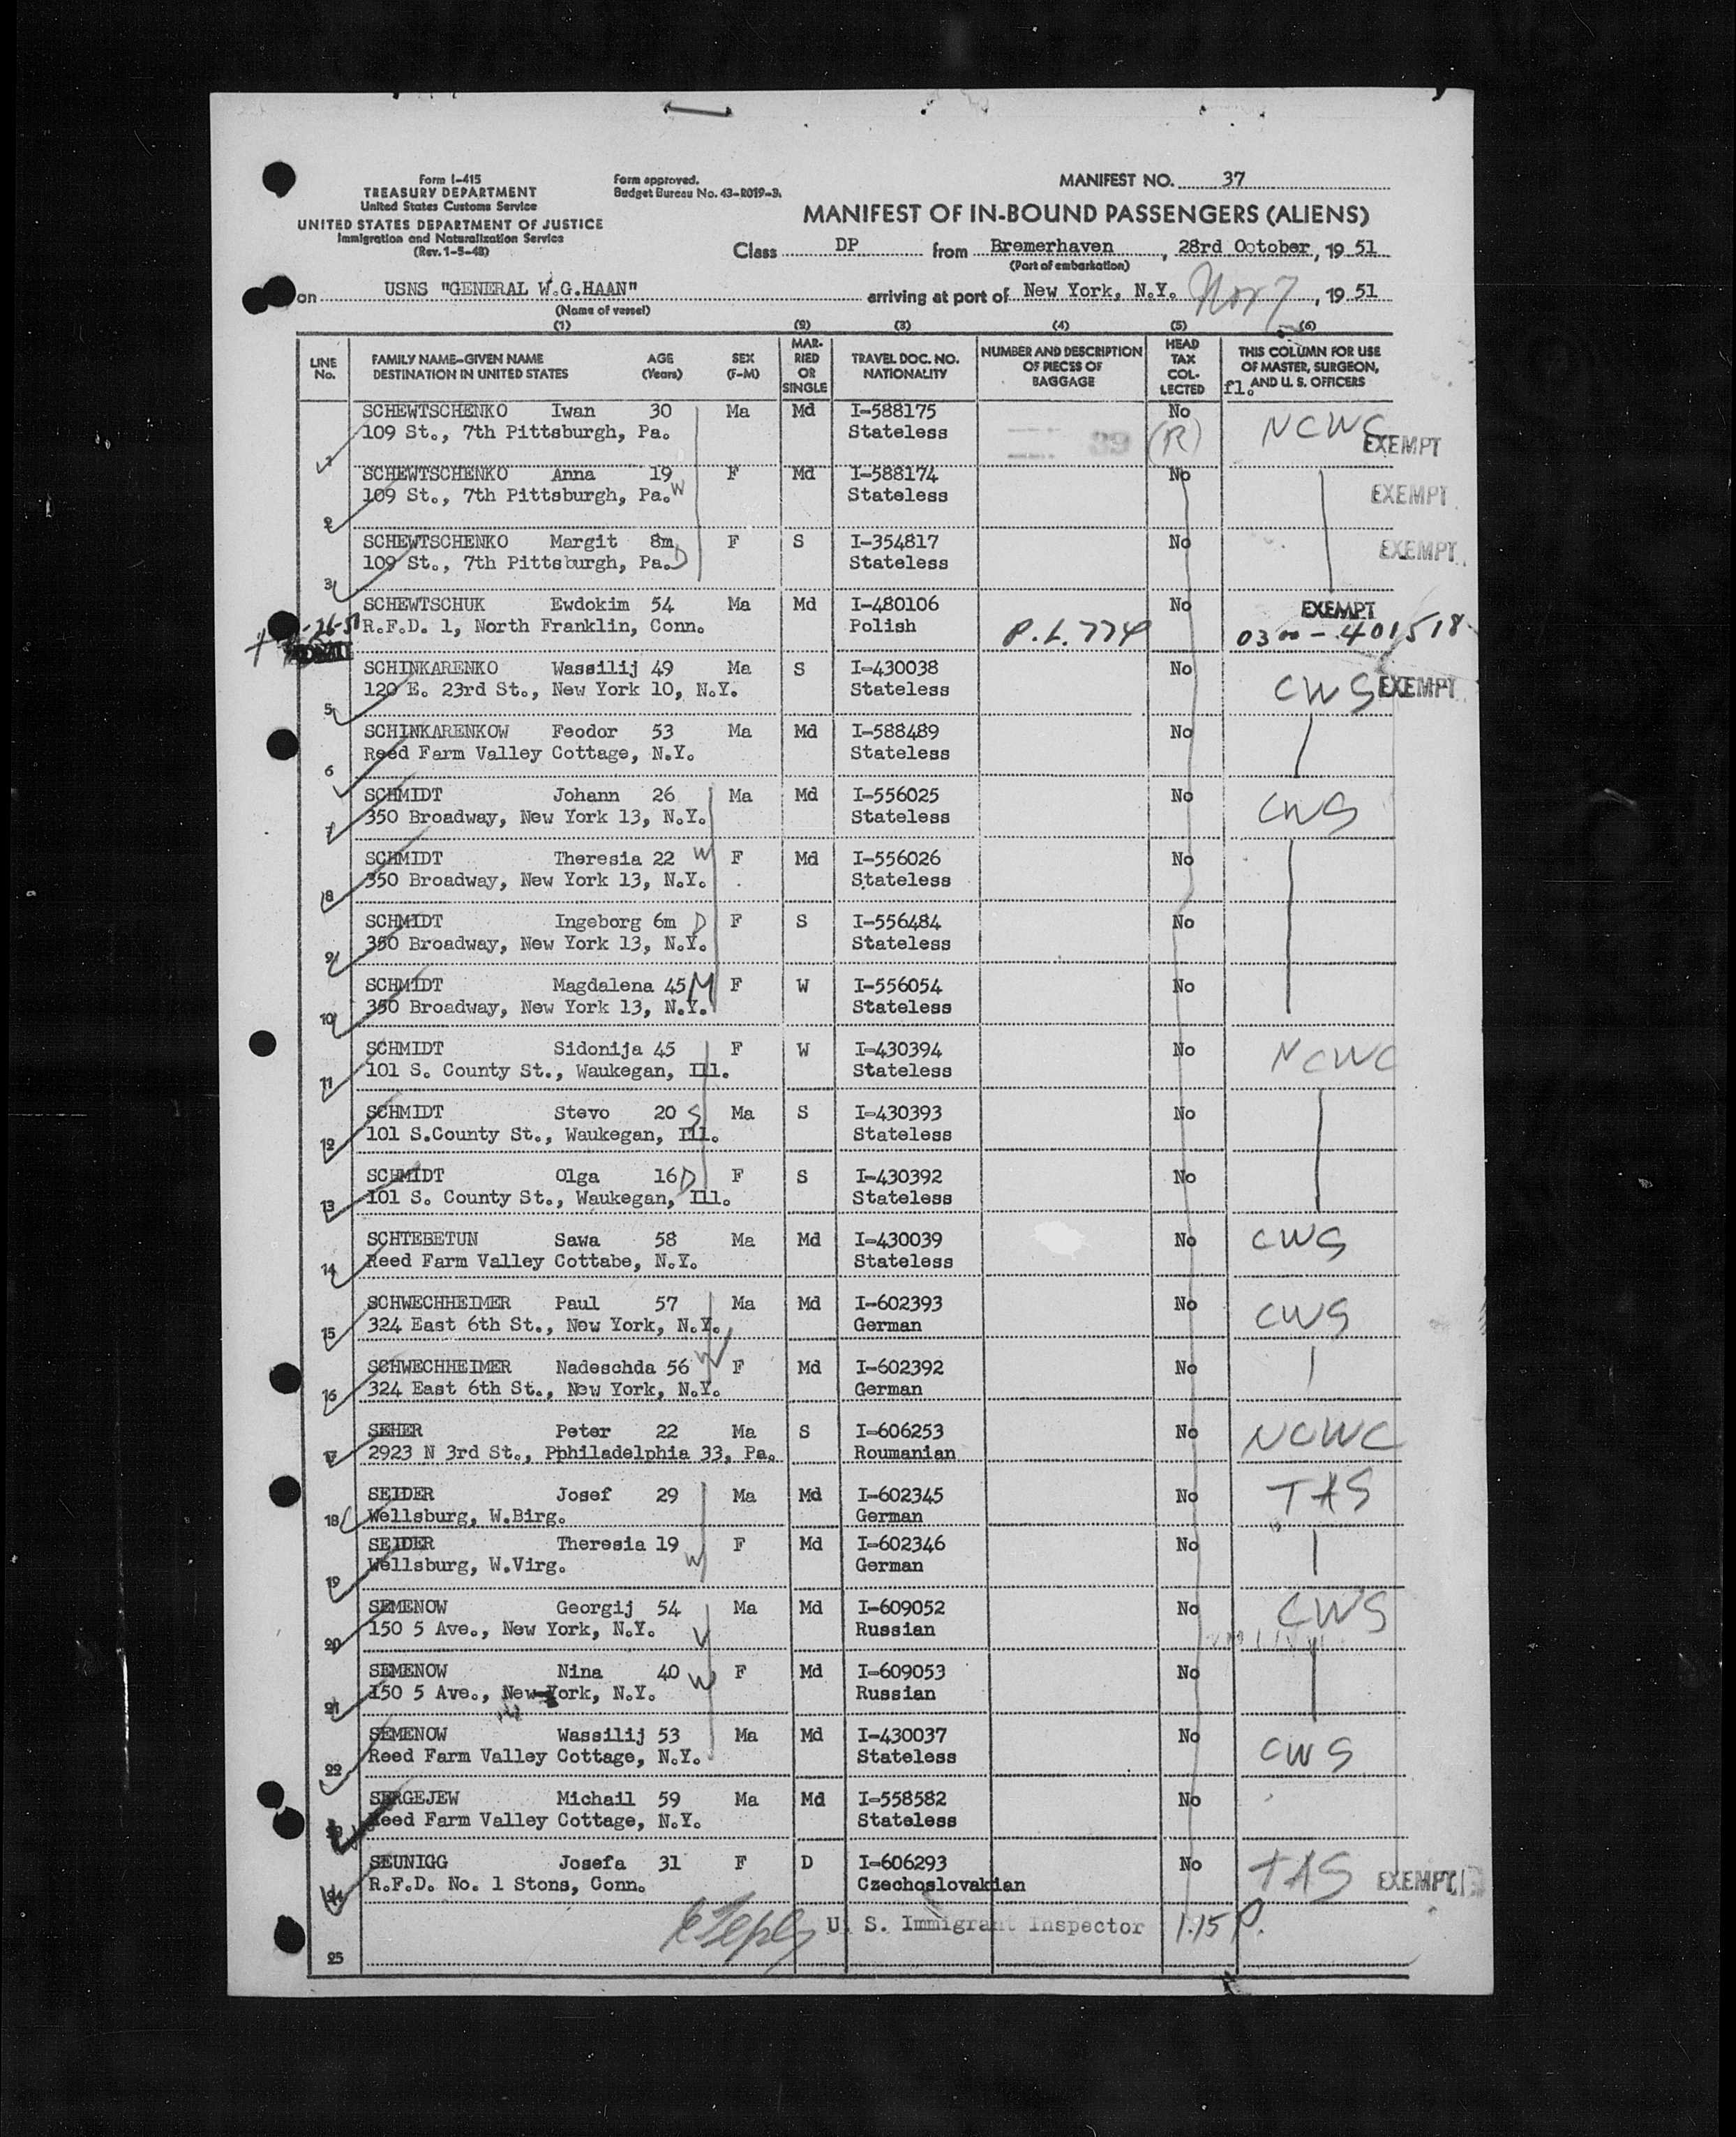 Form I-415
TREASURY DEPARTMENT
United States Customs Service
UNITED STATES DEPARTMENT OF JUSTICE
Immigration and Naturalization Service
(Rev. 1-5-48)
Form approved.
Budget Bureau No. 43-R019-3.
MANIFEST NO. 37
MANIFEST OF IN-BOUND PASSENGERS (ALIENS)
Class DP from Bremerhaven, 28rd October, 19 51
(Port of embarkation)
on USNS "GENERAL W.G.HAAN" arriving at port of New York, N.Y. Nov 7, 19 51
(Name of vessel)
(1) (2) (3) (4) (5) (6)
LINE No. FAMILY NAME-GIVEN NAME DESTINATION IN UNITED STATES AGE (Years) SEX (F-M) MARRIED OR SINGLE TRAVEL DOC. NO. NATIONALITY NUMBER AND DESCRIPTION OF PIECES OF BAGGAGE HEAD TAX COLLECTED THIS COLUMN FOR USE OF MASTER, SURGEON, AND U. S. OFFICERS
fl.
SCHEWTSCHENKO Iwan 30 Ma Md I-588175 No NCWC
1 109 St., 7th Pittsburgh, Pa. Stateless 39 (R) EXEMPT
SCHEWTSCHENKO Anna 19 F Md I-588174 No
2 109 St., 7th Pittsburgh, Pa. W Stateless EXEMPT
SCHEWTSCHENKO Margit 8m F S I-354817 No
3 109 St., 7th Pittsburgh, Pa. D Stateless EXEMPT
SCHEWTSCHUK Ewdokim 54 Ma Md I-480106 No EXEMPT
-26-51 R.F.D. 1, North Franklin, Conn. Polish P.L. 774 0300-401518
SCHINKARENKO Wassilij 49 Ma S I-430038 No
5 120 E. 23rd St., New York 10, N.Y. Stateless CWS EXEMPT
SCHINKARENKOW Feodor 53 Ma Md I-588489 No
6 Reed Farm Valley Cottage, N.Y. Stateless
SCHMIDT Johann 26 Ma Md I-556025 No CWS
7 350 Broadway, New York 13, N.Y. Stateless
SCHMIDT Theresia 22 W F Md I-556026 No
8 350 Broadway, New York 13, N.Y. Stateless
SCHMIDT Ingeborg 6m D F S I-556484 No
9 350 Broadway, New York 13, N.Y. Stateless
SCHMIDT Magdalena 45 M F W I-556054 No
10 350 Broadway, New York 13, N.Y. Stateless
SCHMIDT Sidonija 45 F W I-430394 No NCWC
11 101 S. County St., Waukegan, Ill. Stateless
SCHMIDT Stevo 20 S Ma S I-430393 No
12 101 S.County St., Waukegan, Ill. Stateless
SCHMIDT Olga 16 D F S I-430392 No
13 101 S. County St., Waukegan, Ill. Stateless
SCHTEBETUN Sawa 58 Ma Md I-430039 No CWS
14 Reed Farm Valley Cottabe, N.Y. Stateless
SCHWECHHEIMER Paul 57 Ma Md I-602393 No CWS
15 324 East 6th St., New York, N.Y. German
SCHWECHHEIMER Nadeschda 56 W F Md I-602392 No
16 324 East 6th St., New York, N.Y. German
SEHER Peter 22 Ma S I-606253 No NCWC
17 2923 N 3rd St., Pphiladelphia 33, Pa. Roumanian
SEIDER Josef 29 Ma Md I-602345 No TAS
18 Wellsburg, W.Birg. German
SEIDER Theresia 19 W F Md I-602346 No
19 Wellsburg, W.Virg. German
SEMENOW Georgij 54 Ma Md I-609052 No CWS
20 150 5 Ave., New York, N.Y. Russian
SEMENOW Nina 40 W F Md I-609053 No
21 150 5 Ave., New York, N.Y. Russian
SEMENOW Wassilij 53 Ma Md I-430037 No
22 Reed Farm Valley Cottage, N.Y. Stateless CWS
SERGEJEW Michail 59 Ma Md I-558582 No
23 Reed Farm Valley Cottage, N.Y. Stateless
SEUNIGG Josefa 31 F D I-606293 No TAS
24 R.F.D. No. 1 Stons, Conn. Czechoslovakian EXEMPT
U. S. Immigrant Inspector 1.15 P.
25